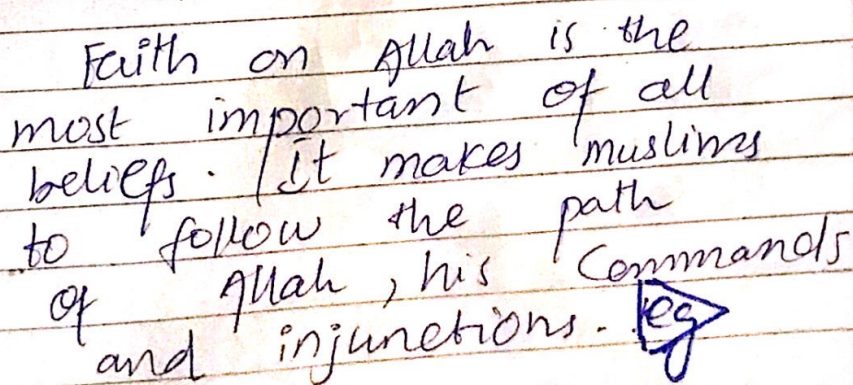 Faith on Allah is the
most important of all
beliefs. It makes muslims
to follow the path
of Allah, his Commands
and injunctions. eg